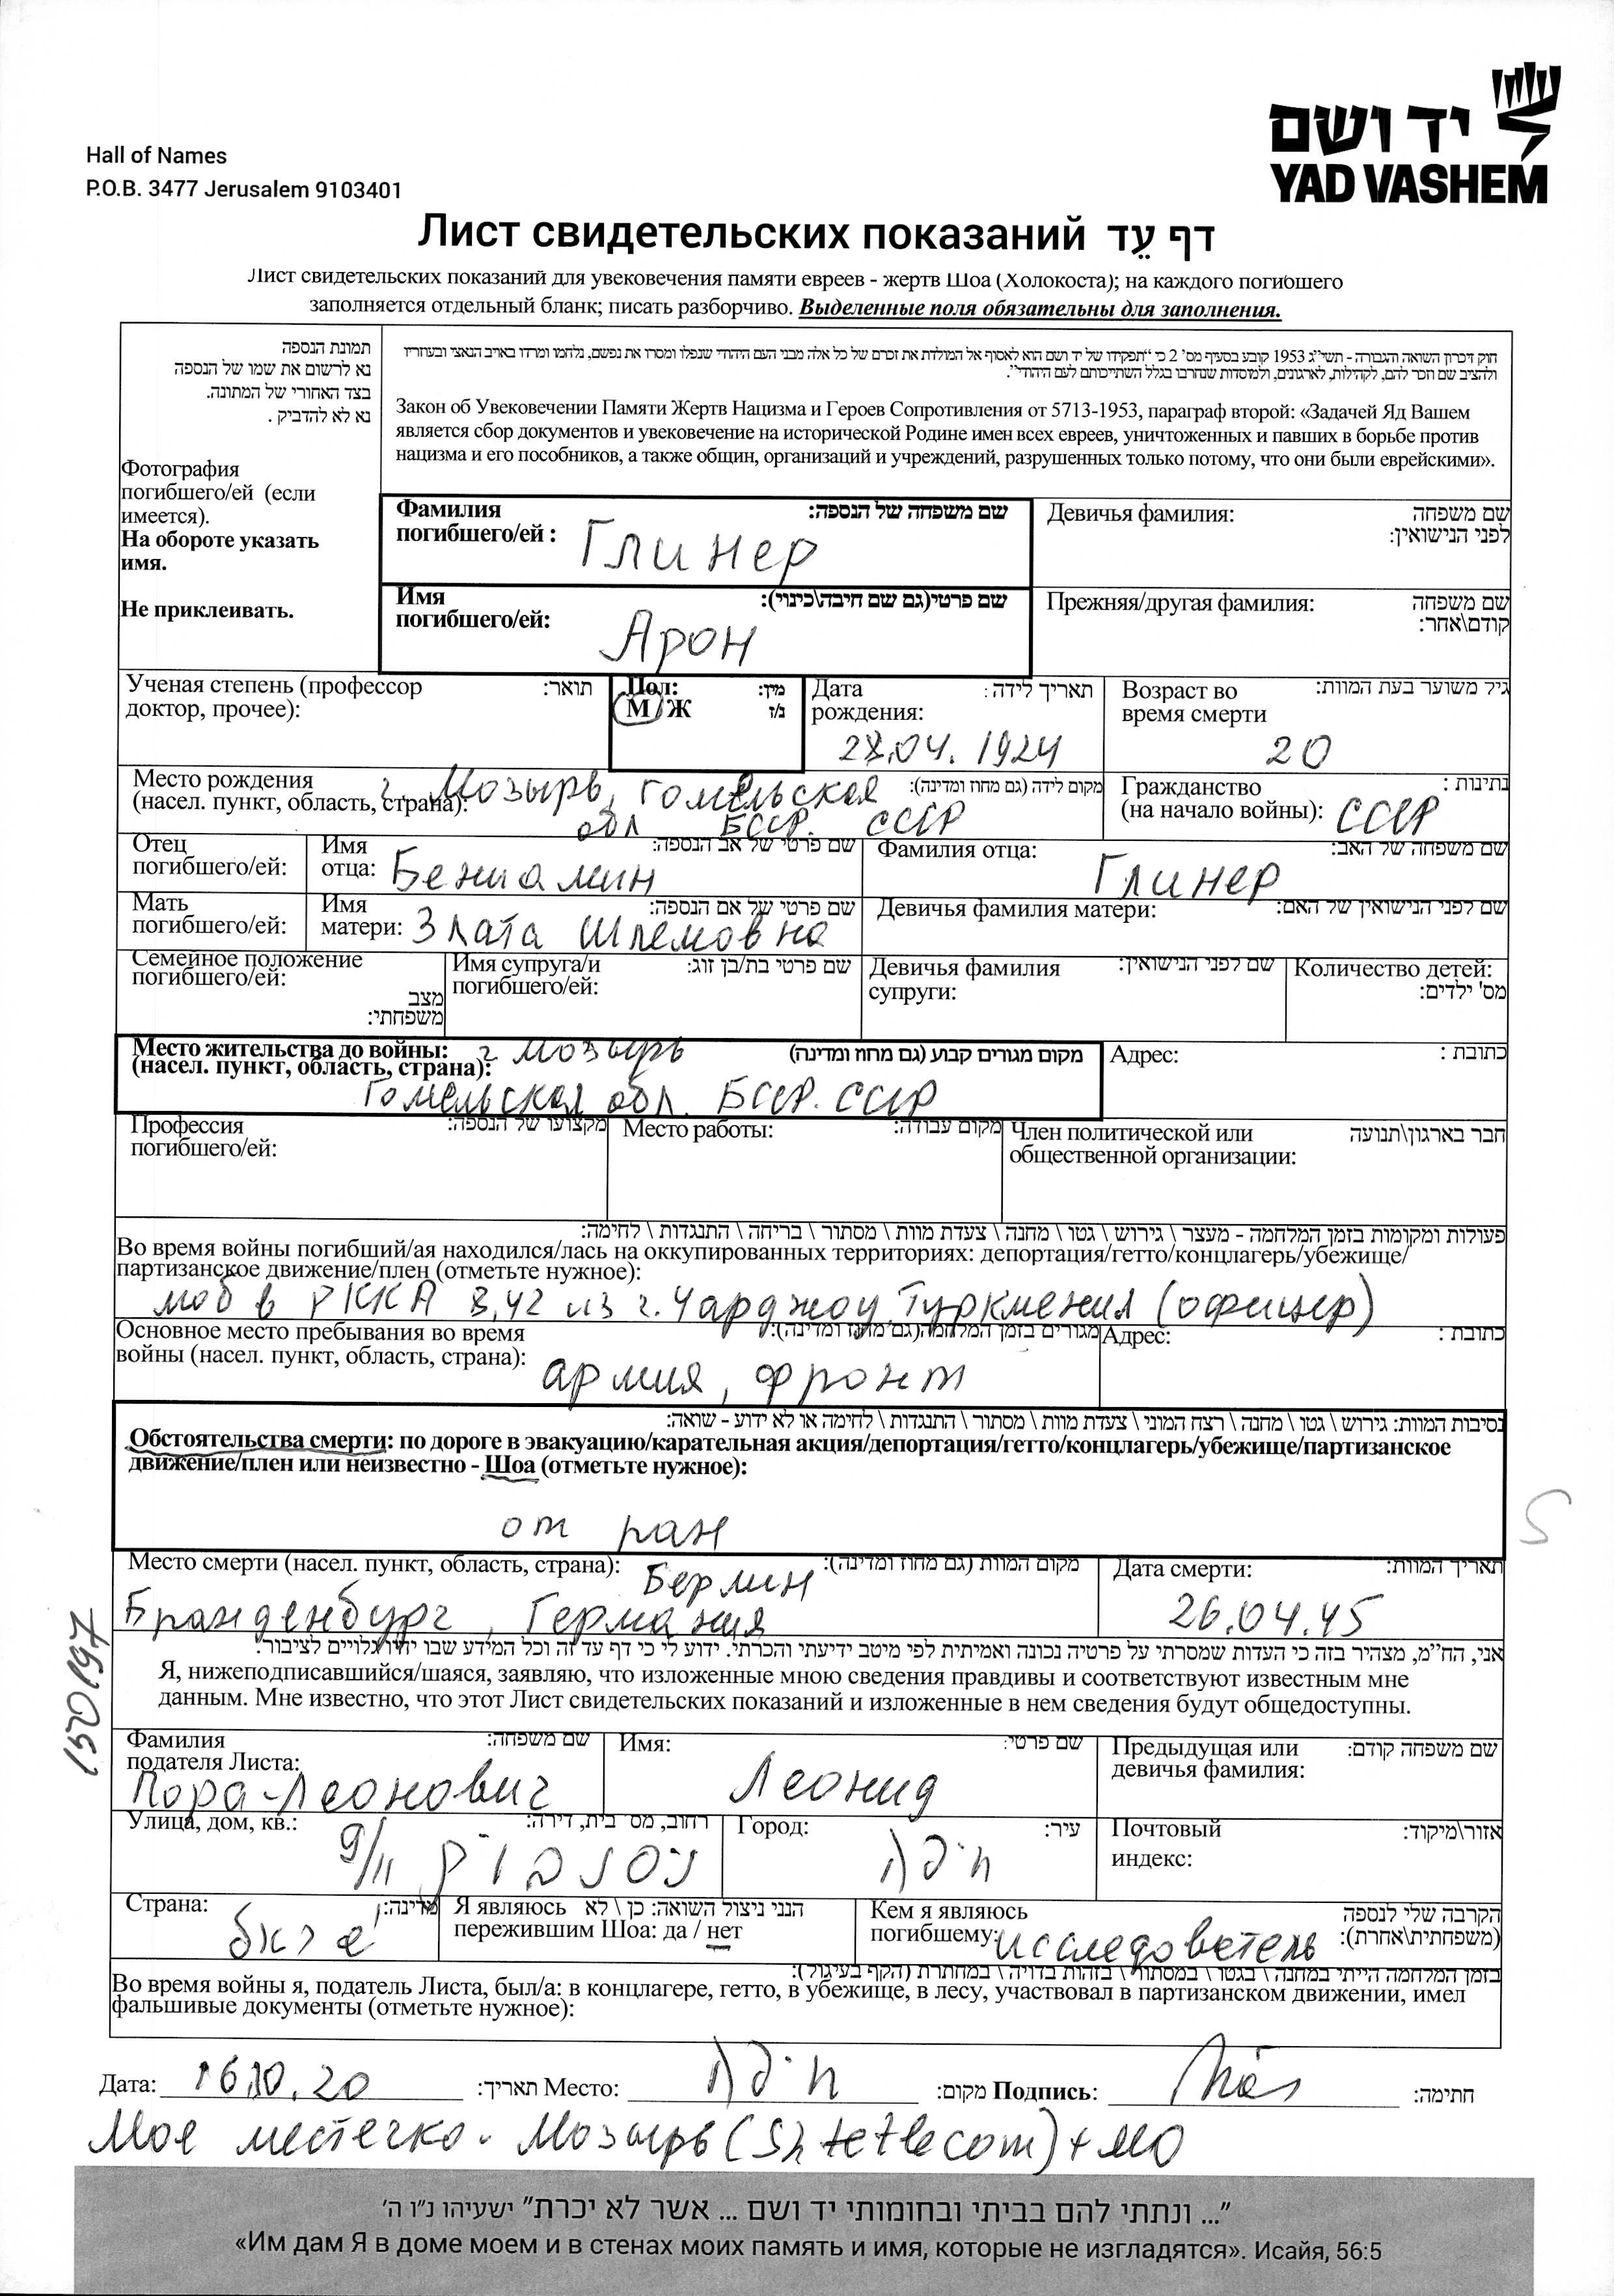 יד ושם
YAD VASHEM
Hall of Names
P.O.B. 3477 Jerusalem 9103401
Лист свидетельских показаний דף עֵד
Лист свидетельских показаний для увековечения памяти евреев - жертв Шоа (Холокоста); на каждого погибшего
заполняется отдельный бланк; писать разборчиво. Выделенные поля обязательны для заполнения.
תמונת הנספה
נא לרשום את שמו של הנספה
בצד האחורי של המתונה.
נא לא להדביק .
Фотография
погибшего/ей (если
имеется).
На обороте указать
имя.
Не приклеивать.
חוק זיכרון השואה והגבורה - תשי"ג 1953 קובע בסעיף מס' 2 כי "תפקידו של יד ושם הוא לאסוף אל המולדת את זכרם של כל אלה מבני העם היהודי שנפלו ומסרו את נפשם, נלחמו ומרדו באויב הנאצי ובעוזריו
ולהציב שם וזכר להם, לקהילות, לארגונים, ולמוסדות שנחרבו בגלל השתייכותם לעם היהודי".
Закон об Увековечении Памяти Жертв Нацизма и Героев Сопротивления от 5713-1953, параграф второй: «Задачей Яд Вашем
является сбор документов и увековечение на исторической Родине имен всех евреев, уничтоженных и павших в борьбе против
нацизма и его пособников, а также общин, организаций и учреждений, разрушенных только потому, что они были еврейскими».
Фамилия погибшего/ей : שם משפחה של הנספה:
Глинер
Девичья фамилия: שם משפחה לפני הנישואין:
Имя погибшего/ей: שם פרטי(גם שם חיבה\כינוי):
Арон
Прежняя/другая фамилия: שם משפחה קודם\אחר:
Ученая степень (профессор доктор, прочее): תואר:
Пол: М/Ж מין: ז/נ
Дата рождения: תאריך לידה:
28.04.1924
Возраст во время смерти גיל משוער בעת המוות:
20
Место рождения (насел. пункт, область, страна): מקום לידה (גם מחוז ומדינה):
г. Мозырь, Гомельская
обл БССР. СССР
Гражданство (на начало войны): נתינות :
СССР
Отец погибшего/ей:
Имя отца: שם פרטי של אב הנספה:
Бениамин
Фамилия отца: שם משפחה של האב:
Глинер
Мать погибшего/ей:
Имя матери: שם פרטי של אם הנספה:
Злата Шлемовна
Девичья фамилия матери: שם לפני הנישואין של האם:
Семейное положение погибшего/ей: מצב משפחתי:
Имя супруга/и погибшего/ей: שם פרטי בת/בן זוג:
Девичья фамилия супруги: שם לפני הנישואין:
Количество детей: מס' ילדים:
Место жительства до войны: (насел. пункт, область, страна): מקום מגורים קבוע (גם מחוז ומדינה)
г Мозырь
Гомельская обл. БССР. СССР
Адрес: כתובת :
Профессия погибшего/ей: מקצועו של הנספה:
Место работы: מקום עבודה:
Член политической или общественной организации: חבר בארגון\תנועה
פעולות ומקומות בזמן המלחמה - מעצר \ גירוש \ גטו \ מחנה \ צעדת מוות \ מסתור \ בריחה \ התנגדות \ לחימה:
Во время войны погибший/ая находился/лась на оккупированных территориях: депортация/гетто/концлагерь/убежище/
партизанское движение/плен (отметьте нужное):
моб в РККА 8,42 из г. Чарджоу, Туркмения (офицер)
Основное место пребывания во время войны (насел. пункт, область, страна): מגורים בזמן המלחמה(גם מחוז ומדינה):
армия, фронт
Адрес: כתובת :
נסיבות המוות: גירוש \ גטו \ מחנה \ רצח המוני \ צעדת מוות \ מסתור \ התנגדות \ לחימה או לא ידוע - שואה:
Обстоятельства смерти: по дороге в эвакуацию/карательная акция/депортация/гетто/концлагерь/убежище/партизанское
движение/плен или неизвестно - Шоа (отметьте нужное):
от ран
S
Место смерти (насел. пункт, область, страна): מקום המוות (גם מחוז ומדינה):
Берлин
Бранденбург, Германия
Дата смерти: תאריך המוות:
26.04.45
150197
אני, הח"מ, מצהיר בזה כי העדות שמסרתי על פרטיה נכונה ואמיתית לפי מיטב ידיעתי והכרתי. ידוע לי כי דף עד זה וכל המידע שבו יהיו גלויים לציבור.
Я, нижеподписавшийся/шаяся, заявляю, что изложенные мною сведения правдивы и соответствуют известным мне
данным. Мне известно, что этот Лист свидетельских показаний и изложенные в нем сведения будут общедоступны.
Фамилия подателя Листа: שם משפחה:
Пора-Леонович
Имя: שם פרטי:
Леонид
Предыдущая или девичья фамилия: שם משפחה קודם:
Улица, дом, кв.: רחוב, מס בית, דירה:
9/11
Город: עיר:
Почтовый индекс: אזור\מיקוד:
Страна: מדינה:
Я являюсь пережившим Шоа: да / нет הנני ניצול השואה: כן \ לא
Кем я являюсь погибшему: הקרבה שלי לנספה (משפחתית\אחרת):
исследователь
בזמן המלחמה הייתי במחנה \ בגטו \ במסתור \ בזהות בדויה \ במחתרת (הקף בעיגול):
Во время войны я, податель Листа, был/а: в концлагере, гетто, в убежище, в лесу, участвовал в партизанском движении, имел
фальшивые документы (отметьте нужное):
Дата: 16.10.20 תאריך: Место: מקום: Подпись: חתימה:
Мое местечко. Мозырь (Shtetle com) + МО
"... ונתתי להם בביתי ובחומותי יד ושם ... אשר לא יכרת" ישעיהו נ"ו ה'
«Им дам Я в доме моем и в стенах моих память и имя, которые не изгладятся». Исайя, 56:5